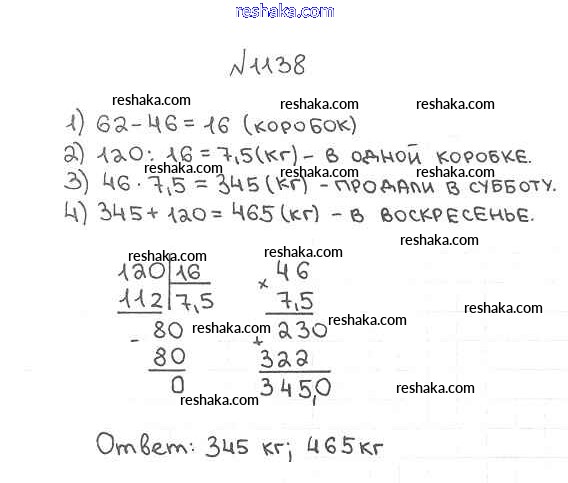 reshaka.com
№1138
reshaka.com
reshaka.com reshaka.com
1) 62-46=16 (КОРОБОК)
reshaka.com
reshaka.com
2) 120:16=7,5(кг)- В ОДНОЙ КОРОБКЕ.
reshaka.com reshaka.com
3) 46·7,5=345(кг)-ПРОДАЛИ В СУББОТУ.
reshaka.com reshaka.com
4) 345+120=465(кг) - В ВОСКРЕСЕНЬЕ.
reshaka.com
reshaka.com reshaka.com
120|16 × 46
112|7,5 7,5
reshaka.com reshaka.com
- 80 + 230
80 322
0 345,0
reshaka.com reshaka.com
Ответ: 345 кг; 465кг
reshaka.com